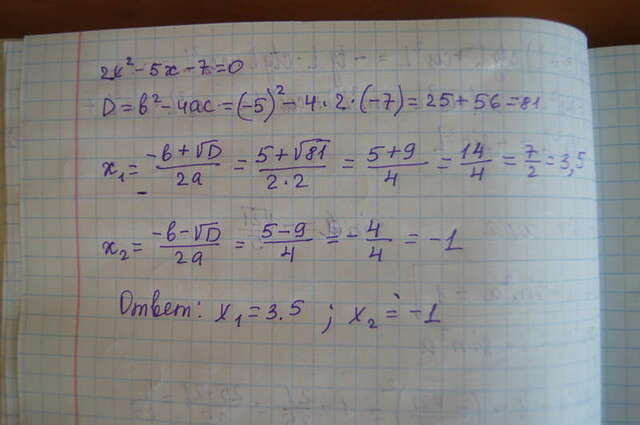 2x² - 5x - 7 = 0
D = b² - 4ac = (-5)² - 4 · 2 · (-7) = 25 + 56 = 81
x₁ = (-b + √D)/(2a) = (5 + √81)/(2 · 2) = (5 + 9)/4 = 14/4 = 7/2 = 3,5
x₂ = (-b - √D)/(2a) = (5 - 9)/4 = -4/4 = -1
Ответ: x₁ = 3.5 ; x₂ = -1